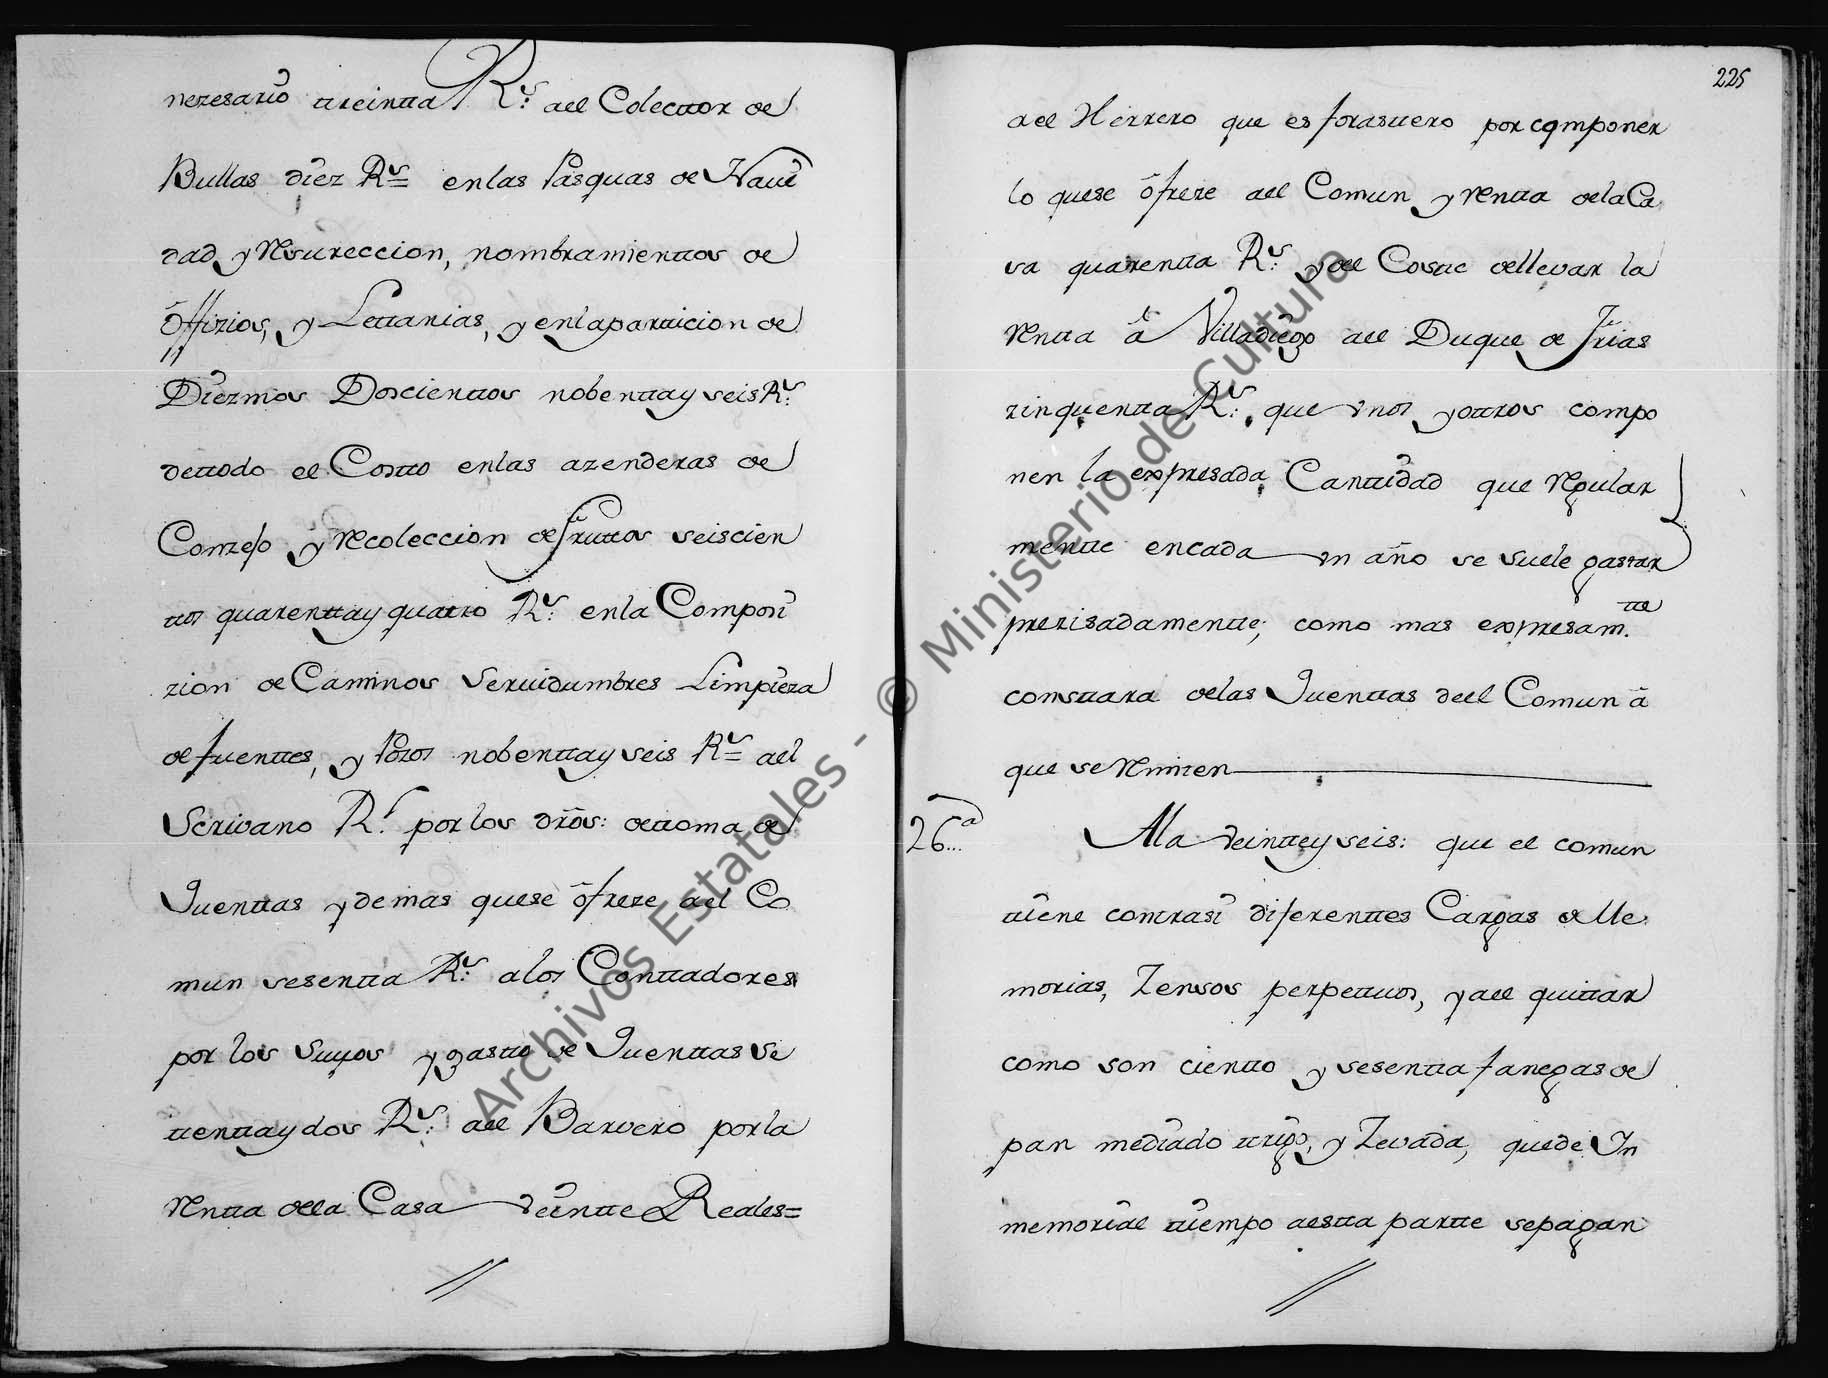 nezesario treintta R.s ael Colecttor de
Bullas diez R.s en las Pasquas de Navi
dad y Resureccion, nombramienttos de
offizios, y Lettanias, y en la parttizion de
Diezmos Doscienttos nobentta y seis R.s
de ttodo el Costto en las azenderas de
Conzejo y Recoleccion de fruttos seiscien
ttos quarentta y quattro R.s en la Composi
zion de Caminos Servidumbres Limpieza
de fuenttes, y Pozos nobentta y seis R.s ael
Scrivano R.l por los dr̃os: de ttoma de
Quenttas y demas que se ofreze ael Co
mun sesentta R.s a los Conttadores
por los suyos y gastto de Quenttas se
ttentta y dos R.s ael Barvero por la
Rentta de la Casa veintte Reales=
225
ael Herrero que es forasttero por componer
lo que se ofreze ael Comun y Rentta de la Ca
sa quarentta R.s y del Costte de llevar la
Rentta â Villadiego ael Duque de Frias
zinquentta R.s que unos y ottros compo
nen la expresada Canttidad que Regular
mentte en cada un año se suele gastar
prezisadamentte; como mas expresam.tte
consttara de las Quenttas deel Comun â
que se Remiten
26.a...
A la veintte y seis: que el comun
ttiene contra si diferenttes Cargas de Me
morias, Zensos perpettuos, y ael quittar
como son cientto y sesentta fanegas de
pan mediado ttrigo, y Zevada, que de In
memorial ttiempo a estta partte se pagan
Archivos Estatales - © Ministerio de Cultura